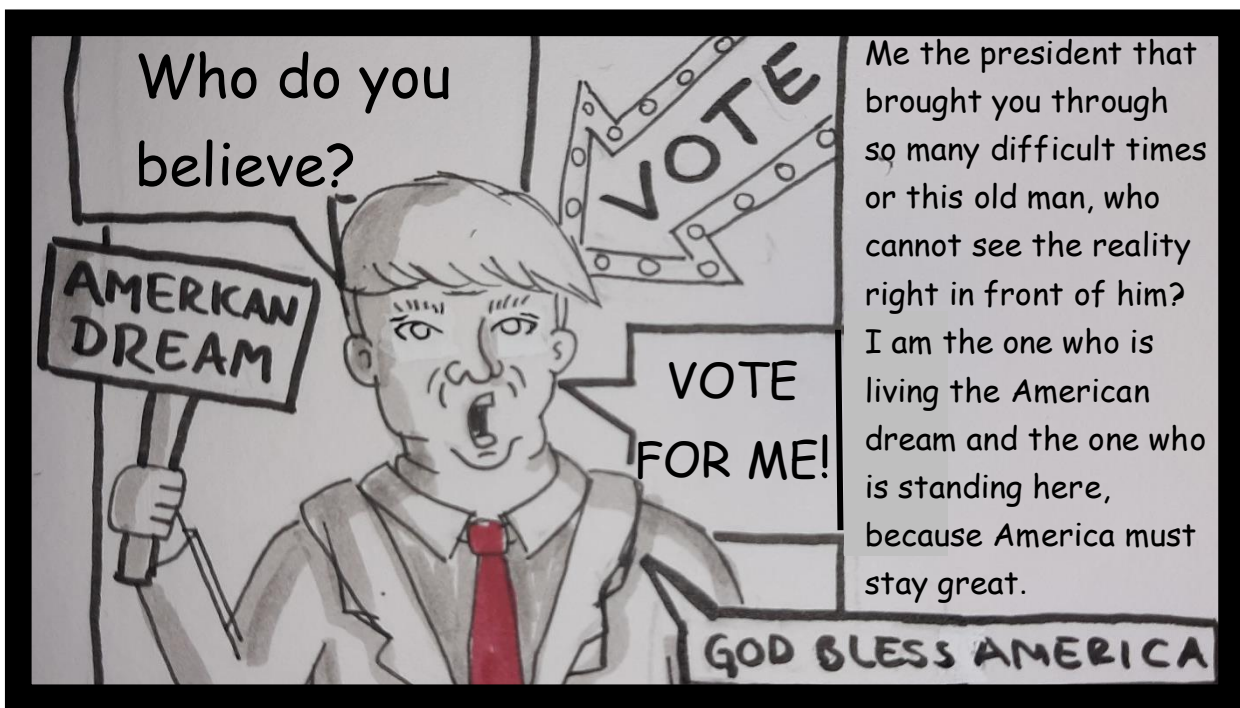 Who do you
believe?
VOTE
AMERICAN
DREAM
VOTE
FOR ME!
Me the president that
brought you through
so many difficult times
or this old man, who
cannot see the reality
right in front of him?
I am the one who is
living the American
dream and the one who
is standing here,
because America must
stay great.
GOD BLESS AMERICA